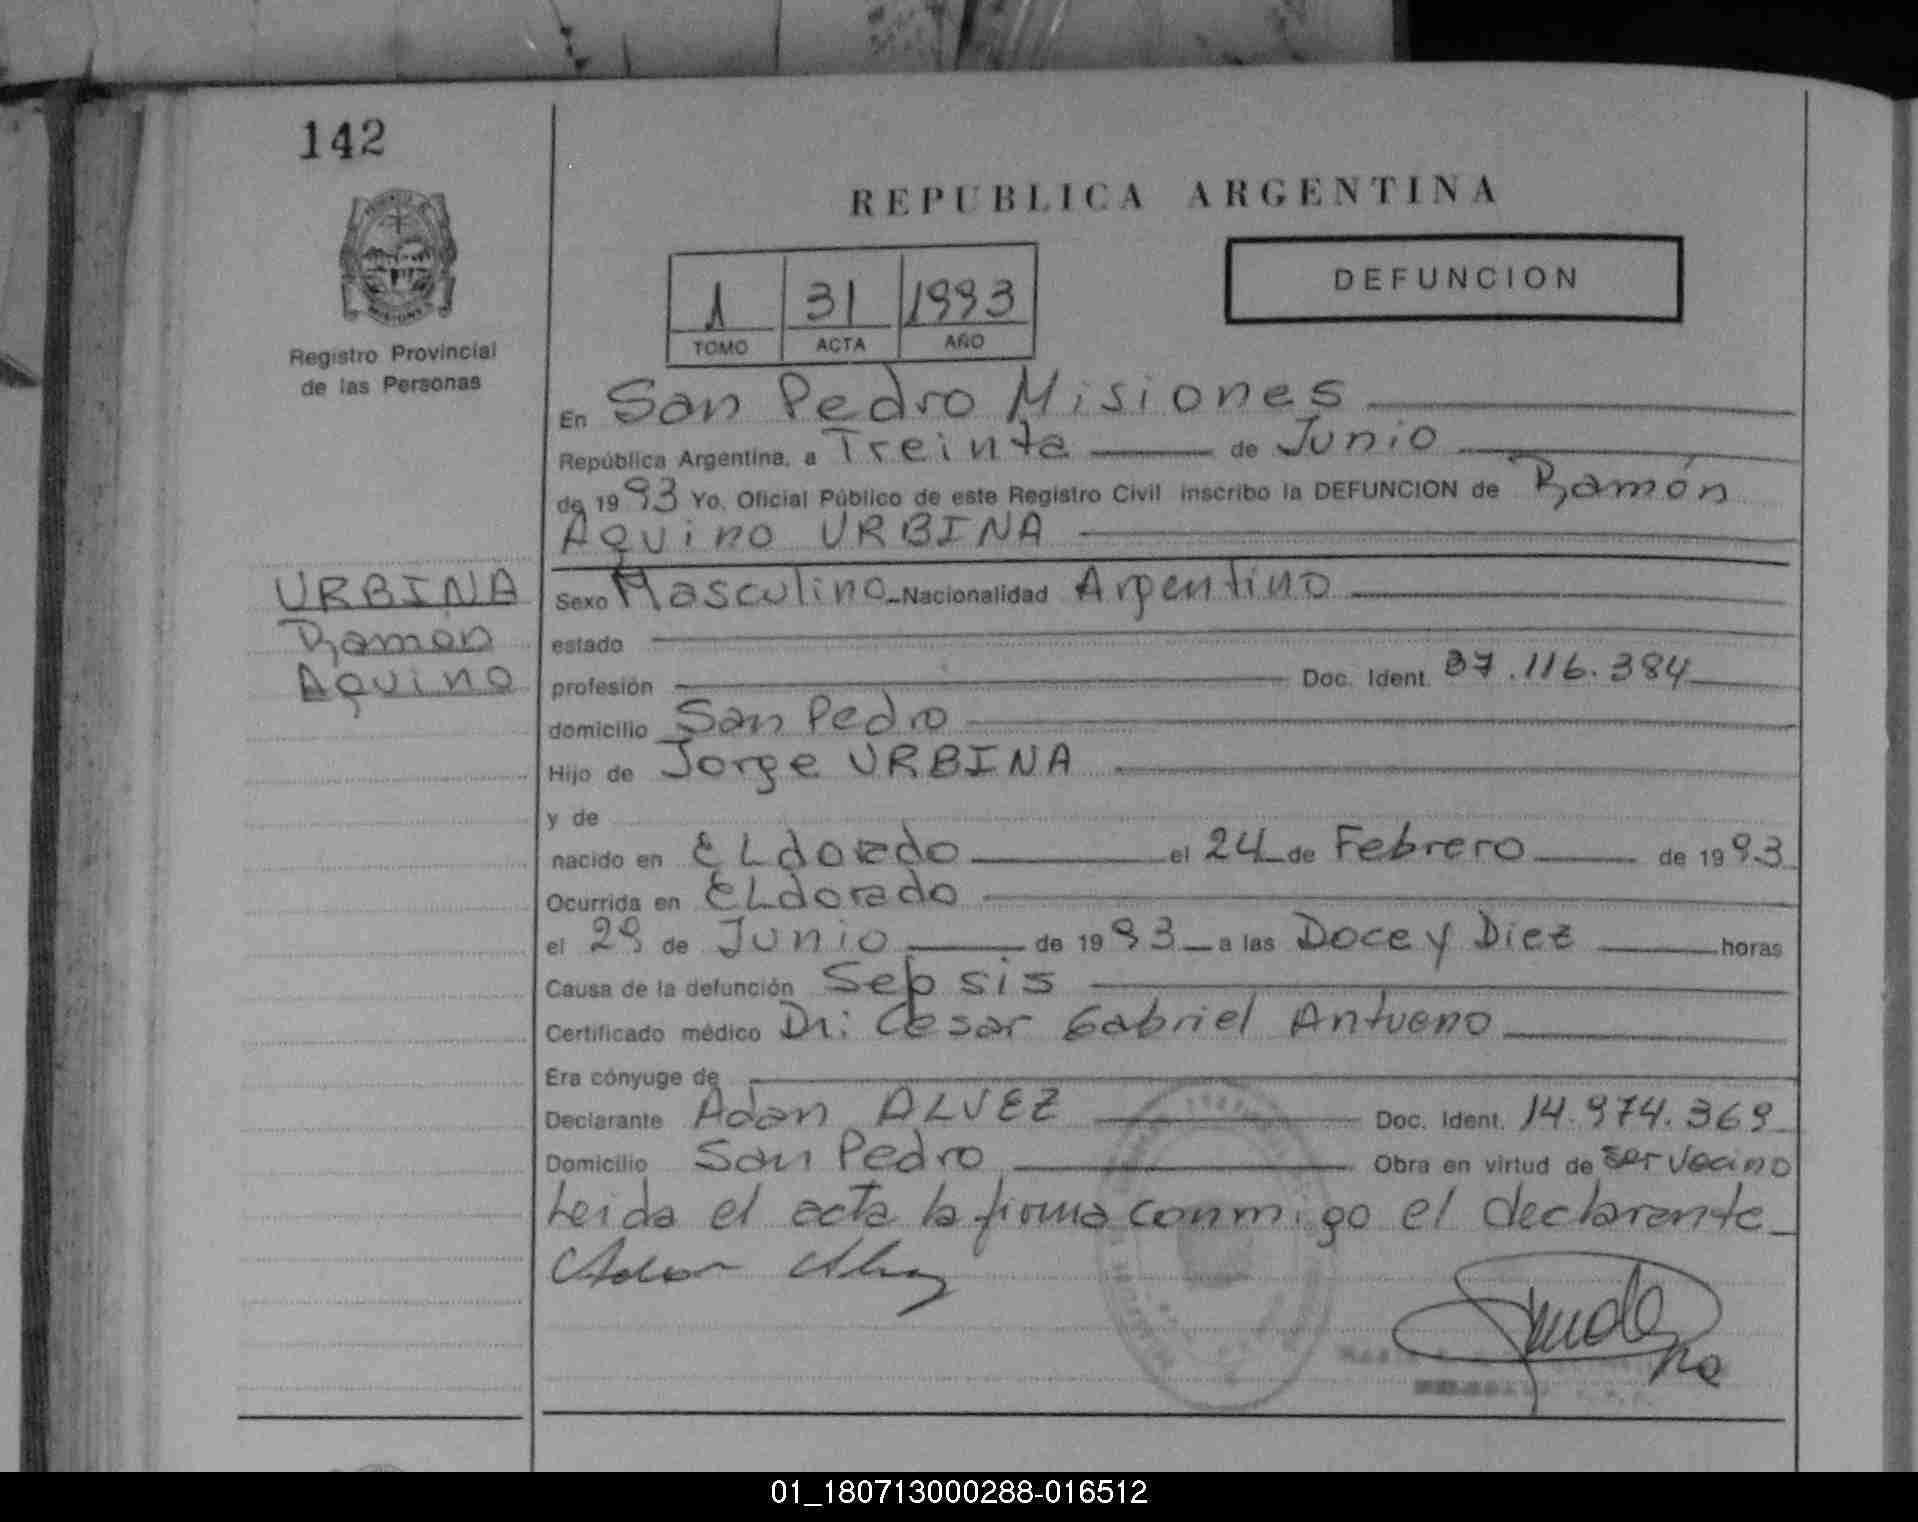 142
REPUBLICA ARGENTINA
DEFUNCION
1 31 1993
TOMO ACTA AÑO
Registro Provincial
de las Personas
En San Pedro Misiones
República Argentina, a Treinta de Junio
de 1993 Yo, Oficial Público de este Registro Civil inscribo la DEFUNCION de Ramón
Aquino URBINA
URBINA
Ramón
Aquino
Sexo Masculino Nacionalidad Argentino
estado
profesión Doc. Ident. 37.116.384
domicilio San Pedro
Hijo de Jorge URBINA
y de
nacido en ELdorado el 24 de Febrero de 1993
Ocurrida en ELdorado
el 29 de Junio de 1993 a las Doce y Diez horas
Causa de la defunción Sepsis
Certificado médico Dr: Cesar Gabriel Antueno
Era cónyuge de
Declarante Adan ALVEZ Doc. Ident. 14.974.369
Domicilio San Pedro Obra en virtud de ser vecino
Leida el acta la firma conmigo el declarante
01_180713000288-016512